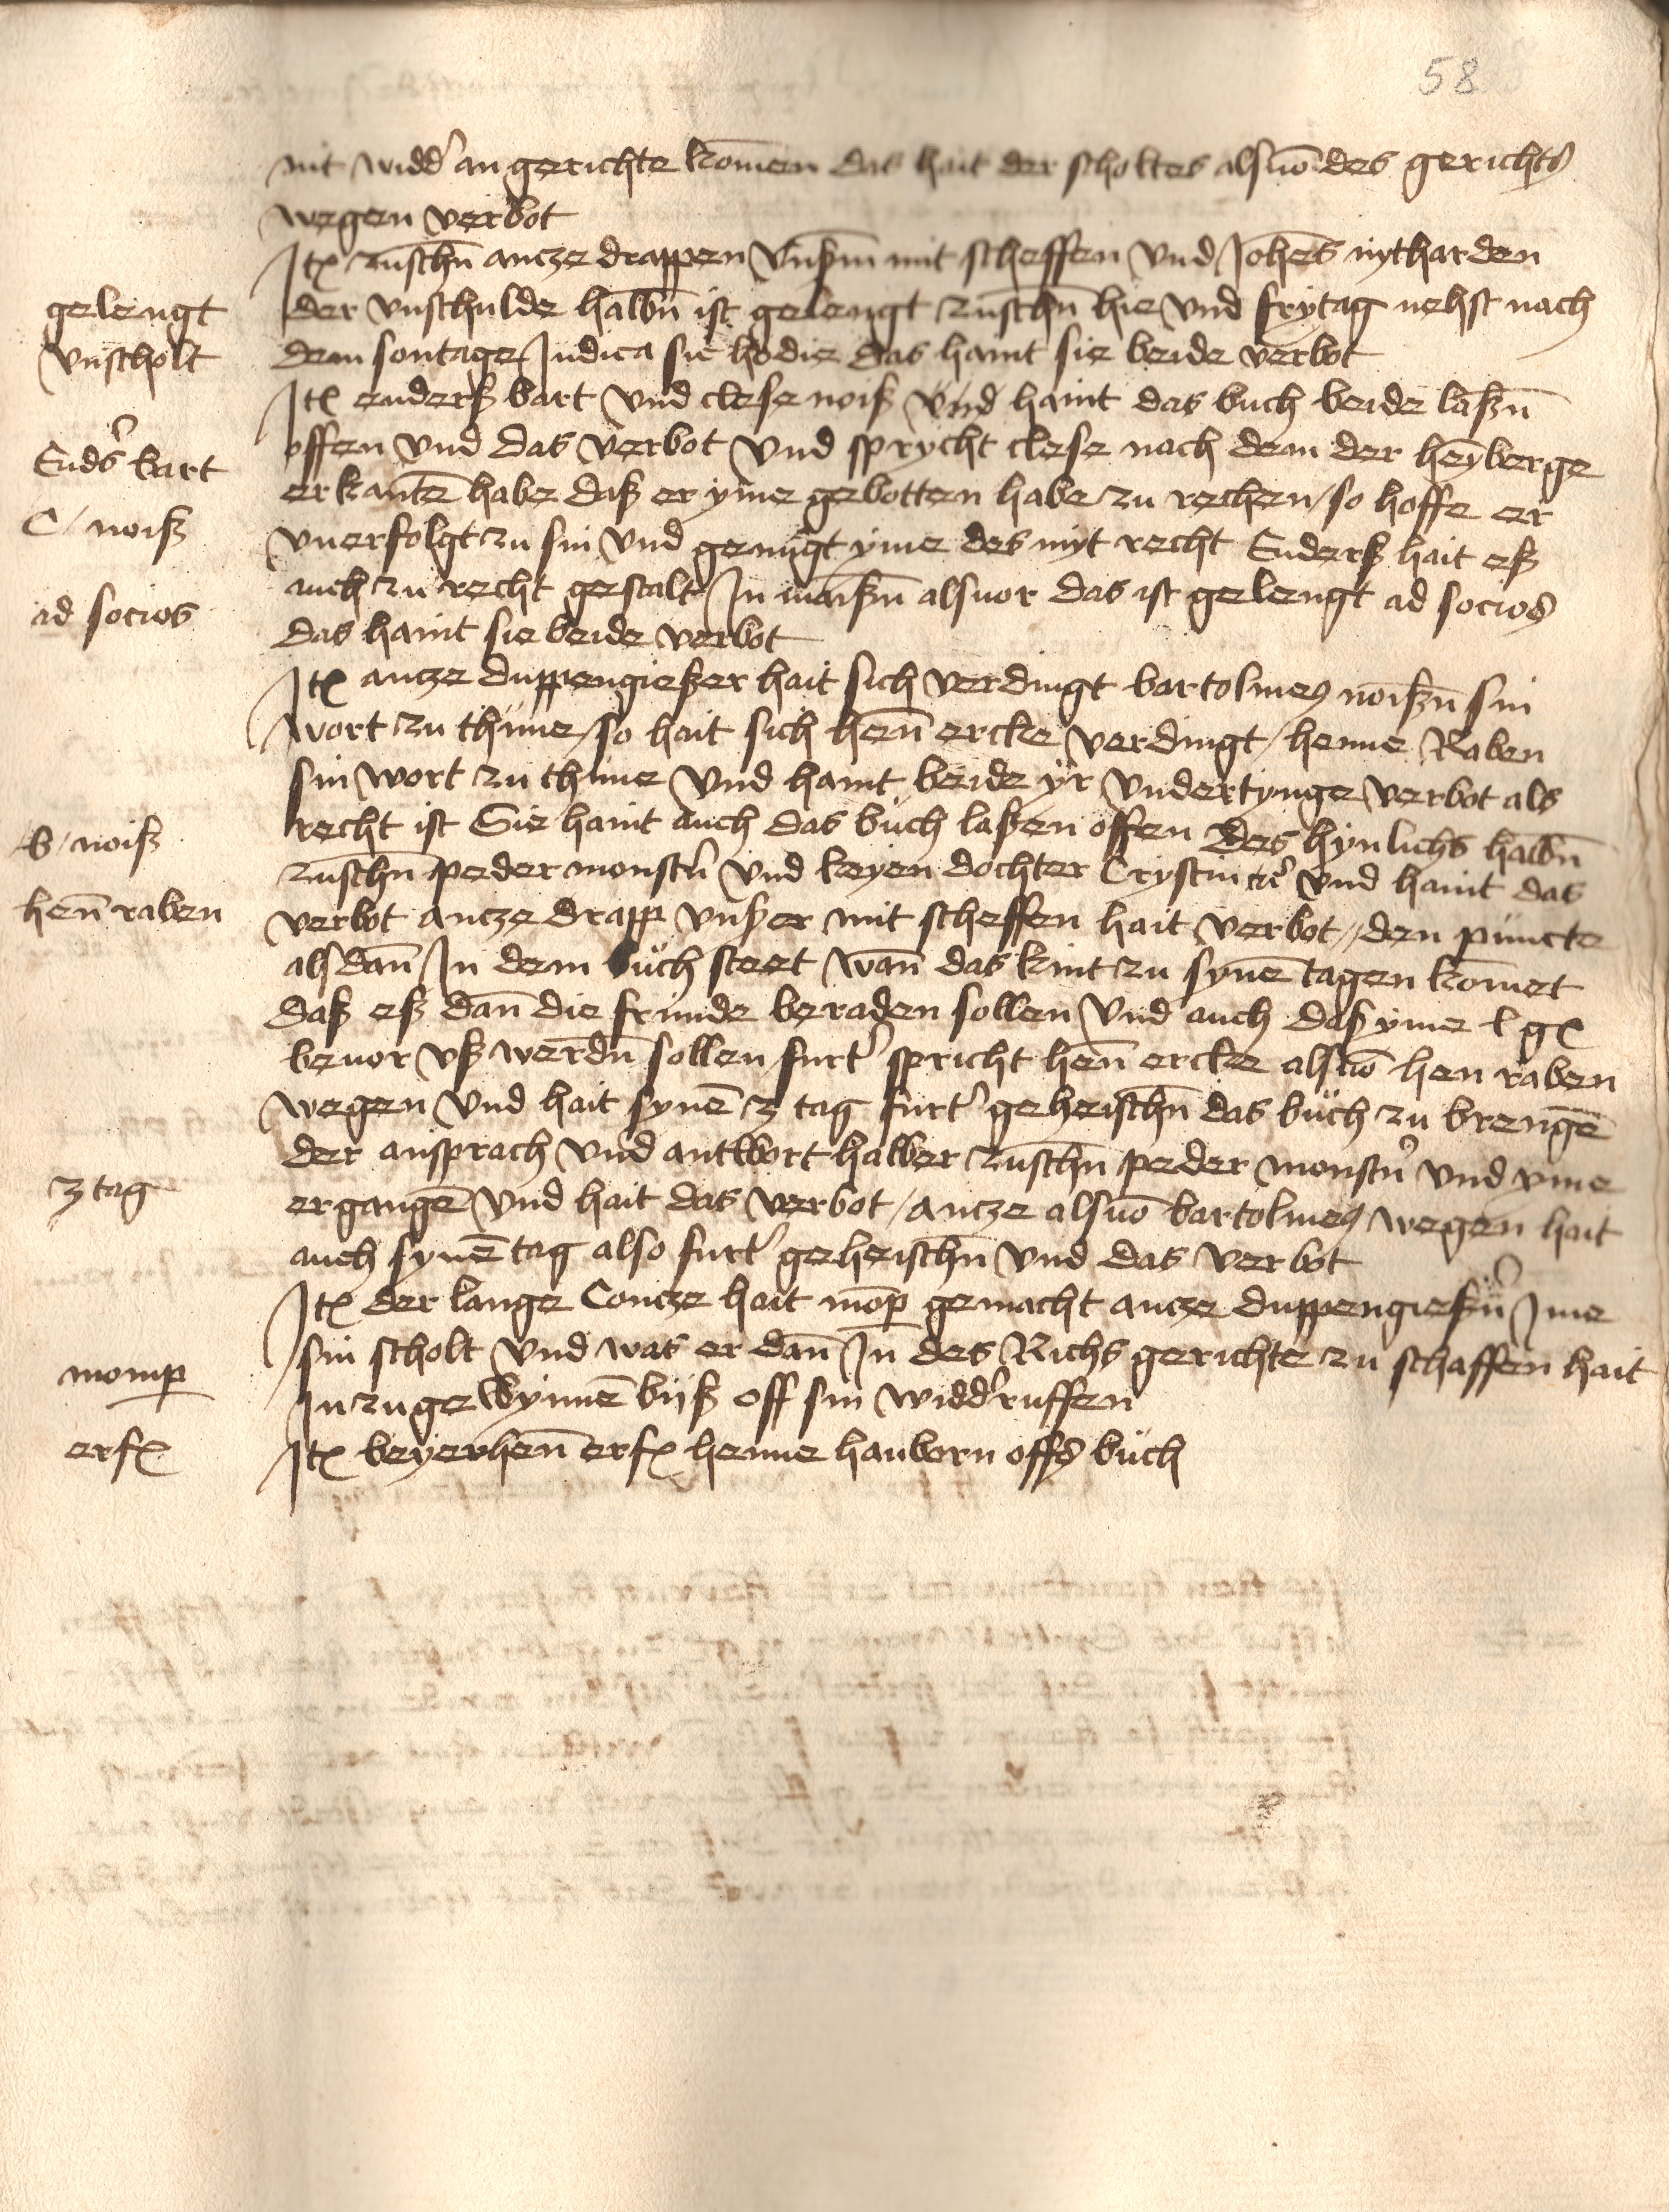 58
nit widd' an gerichte kom̄en das hait der scholtes alsuō des gerichts
wegen verbot
Itē zusch̄n ancze drappen vnß̄m mit scheffen vnd Joh̄es nytharden
gelengt
der vnschulde halb̄n ist gelengt zusch̄n hie vnd frytag nehst nach
vnscholt
dem sontage Judica sic hodie das haint sie beide verbot
Itē enderß bart vnd clese noiß vnd haint das buch beide laß̄n
End's bart
offen vnd das verbot vnd sprycht clese nach dem der heyberge
erkant̄e habe daß er yme gebotten habe zu rechen / so hoffe er
C / noiß
vnerfolgt zu sin vnd genūgt yme des nyt recht Enderß hait eß
auch zu recht gestalt In maiß̄n alsuor das ist gelengt ad socios
ad socios
das haint sie beide verbot
Itē ancze duppengießer hait sich verdingt bartolmeß noiß̄n sin
wort zu thūne / so hait sich hen̄ ercke verdingt / henne Raben
sin wort zu thūne vnd haint beide yr vndertynge verbot als
recht ist Sie haint auch das buch laßen offen des hynlichs halb̄n
b / noiß
zusch̄n peder monst'n vnd keyen dochter Crystin er' vnd haint das
hen̄ raben
verbot ancze drapp vnßer mit scheffen hait verbot // den puncte
als dan̄ In dem buch steet wan̄ das kint zu syn̄e tagen kom̄et
daß eß dan̄ die frunde beraden sollen vnd auch daß yme l gē
beuor vß werd̄n sollen furt' spricht hen̄ ercke alsuō hen raben
wegen vnd hait syn̄e 3 tag furt' geheisch̄n das buch zu brenḡe
der ansprach vnd antwort halber zusch̄n peder monst'n vnd yme
3 tag
erganḡe vnd hait das verbot / ancze alsuō bartolmeß wegen hait
auch syn̄e tag also furt' geheisch̄n vnd das verbot
Itē der lange Concze hait mōp gemacht ancze duppengieß'n Ime
sin scholt vnd was er dan̄ In des Richs gerichte zu schaffen hait
momp
In zugewynn̄e biß off sin widd'ruffen
erfē
Itē beyerhen̄ erfē henne hanborn offs buch